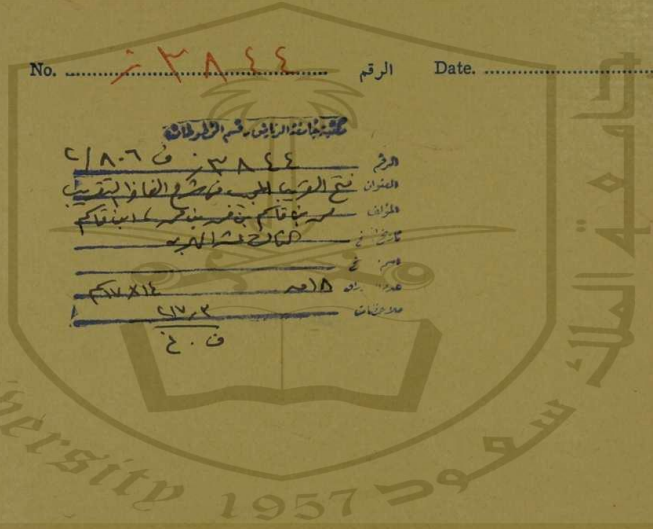 No. ٣٨٤٤ ز الرقم Date.
مكتبة جامعة الرياض - قسم المخطوطات
الرقم ٣٨٤٤ ز ف ٨٠٦/٢
العنوان فتح القريب المجيب في شرح الفاظ التقريب
المؤلف محمد بن قاسم بن محمد بن محمد، ابن قاسم
تاريخ النسخ الثالث عشر الهجري
اسم الناسخ
عدد الأوراق ١٨ ق ١٤×١٧ سم
ملاحظات ٢١٧٫٣
ف . غ
جامعة الملك سعود
versity 1957